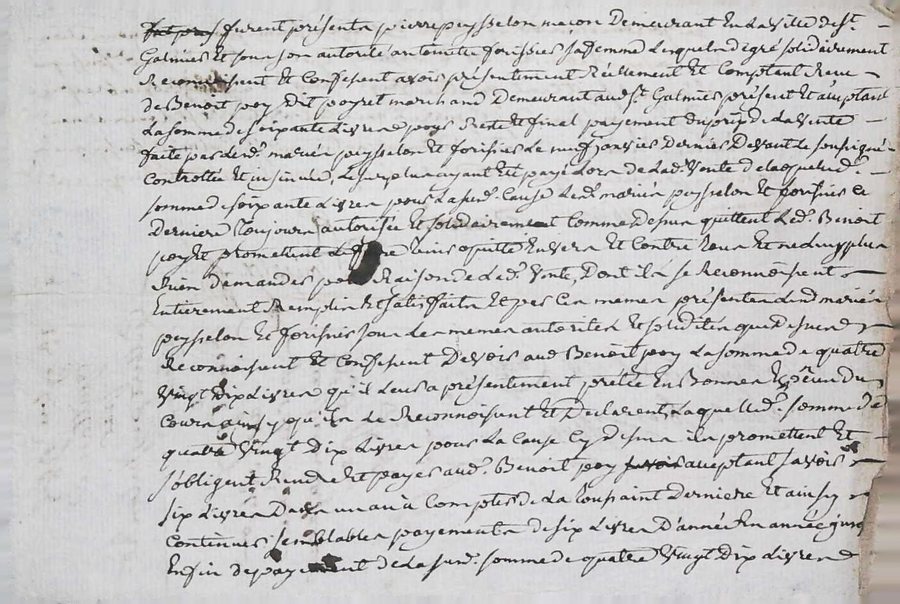 furent présents pierre peysselon macon Demeurant En la ville de St
Galmier Et sous son autorité antoinette forissier sa femme Lesquels de gré solidairement
Reconnoissent Et Confessent avoir présentement Réellement Et Comptant Receu
de Benoit poy Dit poyret marchand Demeurant aud. St Galmier présent Et acceptant
La somme de soixante Livres pour Reste Et final payement du prix de La vente
faite par les d. mariés peysselon Et forissier Le neuf janvier Dernier Devant Le soussigné
Controllée Et insinuée, Le surplus ayant Eté payé Lors de Lad. vente de laquelle d.
somme de soixante Livres pour La susd. Cause Les d. mariés peysselon Et forissier Ce
Derniere Toujours autorisée Et solidairement Comme Dessus quittent Led. Benoit
poy Et promettent Le tenir quitte Envers Et Contre Tous Et ne plus
Rien demander pour Raison de Lad. vente, Dont ils se Reconnoissent
Entierement Remplis Et satisfaits Et par Ces memes présentes Lesd. mariés
peysselon Et forissier sous Les memes autorités Et solidité que Dessus
Reconnoissent Et Confessent Devoir aud. Benoit poy La somme de quatre
Vingt Dix Livres qu'il Leur a présentement prêtée En Bonnes Espèces du
Cours ainsy qu'ils Le Reconnoissent Et Declarent, Laquelle d. somme de
quatre Vingt Dix Livres pour La Cause Cy Dessus ils promettent Et
s'obligent Rendre Et payer aud. Benoit poy acceptant savoir
six Livres Dans un an à Compter de La Toussaint Derniere Et ainsy
Continuer semblables payements de six Livres D'année En année jusq
Enfin de payement de La susd. somme de quatre Vingt Dix Livres